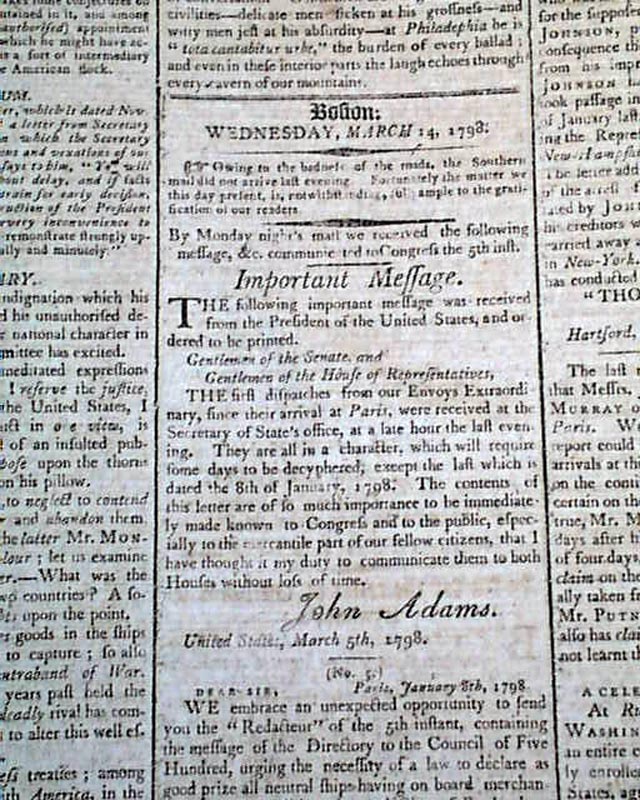 tained in it, and among
authoriſed) appointment
which he might have ac-
is a ſort of intermediary
e American ſtock.
UM.
er, which is dated Nov.
a letter from Secretary
n which the Secretary
ons and vexations of our
ſays to him, "You will
hout delay, and if facts
ruction of the Preſident
very inconvenience to
remonſtrate ſtrongly up-
ally and minutely."
ARY.
ndignation which his
d his unauthoriſed de-
national character in
mittee has excited.
meditated expreſſions
I reſerve the juſtice,
the United States, I
uſt in one view, is
of an inſulted pub-
boſe upon the thorns
on his pillow.
to neglect to contend
and abandon them
the latter Mr. MON-
lour; let us examine
er.—What was the
countries? A ſo-
upon the point.
goods in the ſhips
to capture; ſo alſo
ntraband of War.
years paſt held the
deadly rival has com-
to alter this well eſ-
treaties; among
th America, in the
civilities—delicate men ſicken at his groſſneſs—and
witty men jeſt at his abſurdity—at Philadelphia he is
"tota cantabitur urbe," the burden of every ballad;
and even in theſe interior parts the laugh echoes through
every cavern of our mountains.
Boſton:
WEDNESDAY, MARCH 14, 1798.
☞ Owing to the badneſs of the roads, the Southern
mail did not arrive laſt evening. Fortunately the matter we
this day preſent, is, notwithſtanding, full ample to the grati-
fication of our readers
By Monday night's mail we received the following
meſſage, &c. communicated to Congreſs the 5th inſt.
Important Meſſage.
THE following important meſſage was received
from the Preſident of the United States, and or-
dered to be printed.
Gentlemen of the Senate, and
Gentlemen of the Houſe of Repreſentatives,
THE firſt diſpatches from our Envoys Extraordi-
nary, ſince their arrival at Paris, were received at the
Secretary of State's office, at a late hour the laſt even-
ing. They are all in a character, which will require
ſome days to be decyphered, except the laſt which is
dated the 8th of January, 1798. The contents of
this letter are of ſo much importance to be immediate-
ly made known to Congreſs and to the public, eſpec-
ially to the mercantile part of our fellow citizens, that I
have thought it my duty to communicate them to both
Houſes without loſs of time.
John Adams.
United States, March 5th, 1798.
(No. 5.)
DEAR SIR, Paris, January 8th, 1798
WE embrace an unexpected opportunity to ſend
you the "Redacteur" of the 5th inſtant, containing
the meſſage of the Directory to the Council of Five
Hundred, urging the neceſſity of a law to declare as
good prize all neutral ſhips having on board merchan-
for the ſuppoſed
JOHNSON,
conſequence th
from his impr
JOHNSON
took paſſage in
of January laſt
ing the Repre
New-Hampſh
the letter add
of the arreſt
ated by JOHN
his creditors w
carried away
in New-York.
has conducted
"THO
Hartford,
The laſt
that Meſſrs.
MURRAY
Paris. W
report could
arrivals at th
on the conti
certain on th
true, Mr. M
days after hi
of four days
claim on the
ally taken fr
Mr. PUTN
alſo has clai
not learnt th
A CELE
At Ri
WASHIN
an entire
ly enrolle
States, ag